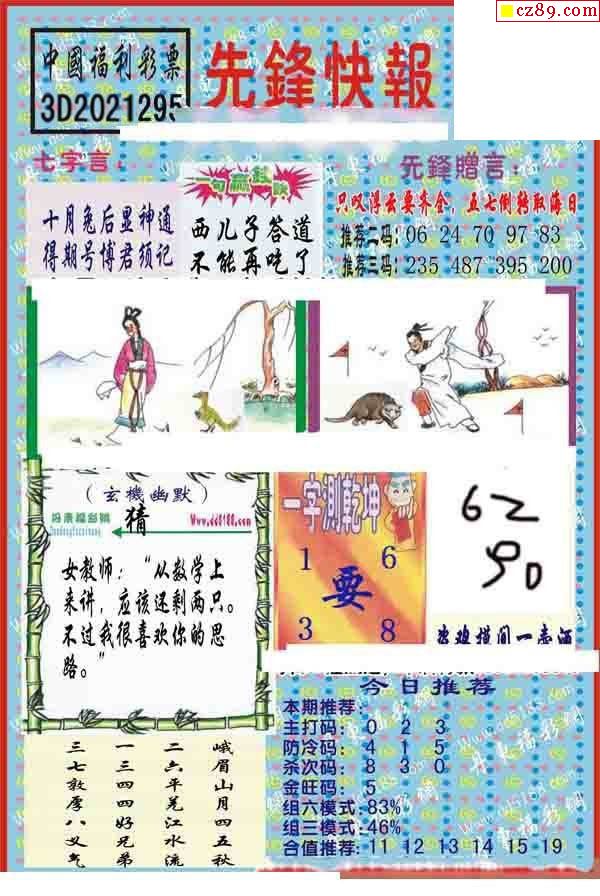 cz89.com
中國福利彩票
3D2021295
先鋒快報
七字言：
十月兔后显神通
得期号博君须记
一句赢钱诀
西儿子答道
不能再吃了
先鋒贈言：
只叹浮云要齐全，五七倒转取海日
推荐二码：06 24 70 97 83
推荐三码：235 487 395 200
（玄機幽默）
猜
www.dd8188.com
女教师：“从数学上
来讲，应该还剩两只。
不过我很喜欢你的思
路。”
一字测乾坤
1 6
要
3 8
62
90
今日推荐
本期推荐：
主打码：0 2 3
防冷码：4 1 5
杀次码：8 3 0
金旺码：5
组六模式：83%
组三模式：46%
合值推荐：11 12 13 14 15 19
峨眉山月四五秋
二六平羌江水流
一三四四好兄弟
三七敦厚八义气